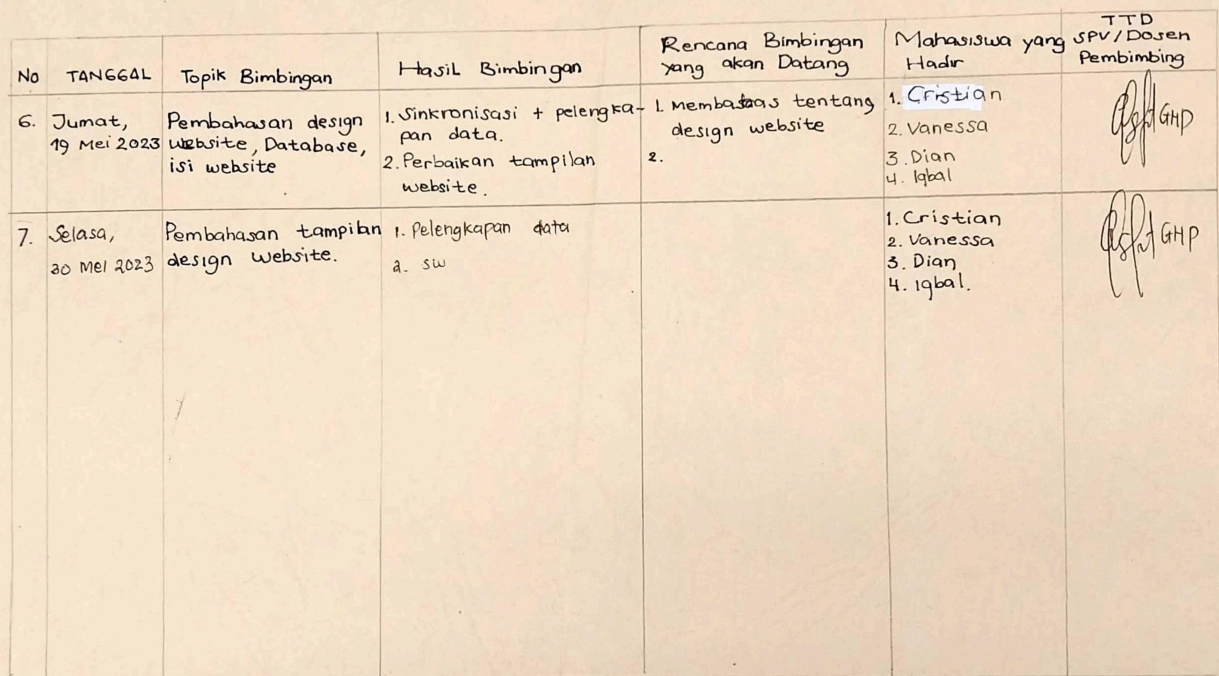 No
TANGGAL
Topik Bimbingan
Hasil Bimbingan
Rencana Bimbingan
yang akan Datang
Mahasiswa yang
Hadir
TTD
SPV/Dosen
Pembimbing
6.
Jumat,
19 Mei 2023
Pembahasan design
website, Database,
isi website
1. Sinkronisasi + pelengka-
pan data.
2. Perbaikan tampilan
website.
1. Membahas tentang
design website
2.
1. Cristian
2. Vanessa
3. Dian
4. Iqbal
GHP
7.
Selasa,
30 Mei 2023
Pembahasan tampilan
design website.
1. Pelengkapan data
2. sw
1. Cristian
2. Vanessa
3. Dian
4. Iqbal.
GHP